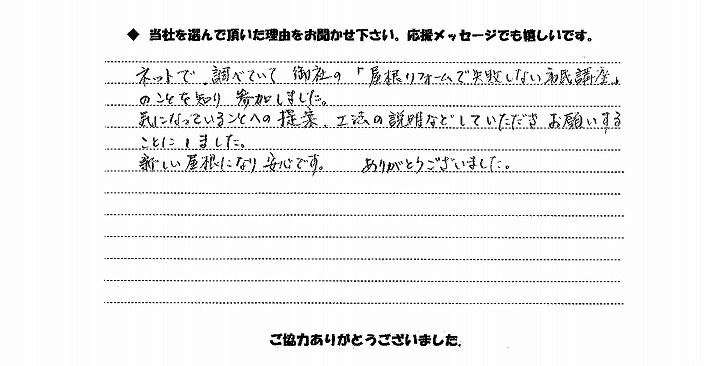 ◆ 当社を選んで頂いた理由をお聞かせ下さい。応援メッセージでも嬉しいです。
ネットで、調べていて 御社の「屋根リフォームで失敗しない市民講座」
のことを知り 参加しました。
気になっていることへの提案、工法の説明などしていただき お願いする
ことにしました。
新しい屋根になり 安心です。 ありがとうございました。
ご協力ありがとうございました。